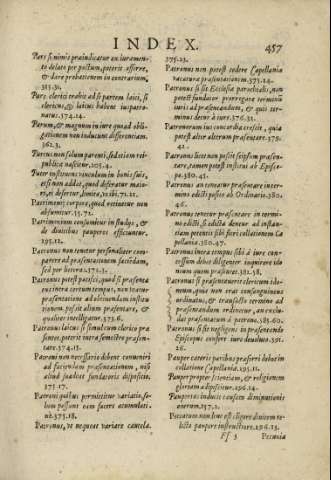 INDEX. 457
Pars si nimis praeiudicatur ex iuramen-
to delato per postum, poterit offerre,
& dare probationem in contrarium,
315.31.
Pars clerici trahit ad se partem laici, si
clericus, & laicus habent iuspatro-
natus. 374.14.
Parum, & magnum in iure quoad obli-
gationem non inducunt differentiam.
362.3.
Partus non solum parenti, sed etiam rei-
publicae nascitur. 205.4.
Pater instituens vinculum in bonis suis,
etsi non addit, quod deferatur maio-
ri, ei defertur, limita, ut ibi. 71.21.
Patrimonij corpus, quod retinetur non
absumitur. 55.72.
Patrimonium consumimus in studijs, &
de diuitibus pauperes efficimur.
195.12.
Patronus non tenetur personaliter com-
parere ad praesentationem faciendam,
sed per literas. 372.3.
Patronus potest pacisci, quod si praesenta
uerit intra certum tempus, non teneatur
praesentatione ad obtinendam institu
tionem possit alium praesentare, &
qualiter intelligatur. 373.6.
Patronus laicus si simul cum clerico prae
sentet, poterit intra semestre praesen-
tare. 374.15.
Patroni non necessario debent conueniri
ad faciendam praesentationem, nisi
aliud suadeat fundatoris dispositio.
375.17.
Patronis quibus permittitur variatio, so-
lum possunt eam facere accumulati-
uè. 375.18.
Patronus, ut nequeat variare cautela.
375.23.
Patronus non potest cedere Capellania
vacatura praesentationem. 375.24.
Patronus si sit Ecclesiae parochialis, non
potest fundator prorogare terminum
iuris ad praesentandum, & quis ter-
minus detur à iure. 376.31.
Patronorum ius concordia cessit, quia
potest alter alterum praesentare. 379.
42.
Patronus licet non possit seipsum praesen-
tare, tamen potest institui ab Episco-
po. 380.45.
Patronus an teneatur praesentare inter-
mino edicti positi ab Ordinario. 380.
46.
Patronus tenetur praesentare in termi-
no edicti, si edicta dentur ad instan-
tiam petentis sibi fieri collationem Ca
pellania. 380.47.
Patronus intra tempus sibi à iure con-
cessum debet diligenter inquirere ido
neum quem praesentet. 381.58.
Patronus si praesentauerit clericum ido-
neum, quia non erat consanguineus
ordinatus, & transacto termino ad
praesentandum ordinetur, an exclu-
dat praesentatum à patrono. 383.60.
Patronus si sit negligens in praesentando
Episcopus confert iure deuoluto. 391.
26.
Pauper caeteris paribus praeferri debet in
collatione Capellania. 195.11.
Pauper propter scientiam, & religionem
gloriam adipiscitur. 196.14.
Paupertas inducit causam diminutionis
onerum. 257.2.
Peccatum non leue est eligere diuitem re-
licto paupere insufficiente. 196.15.
Ff 3 Pecunia